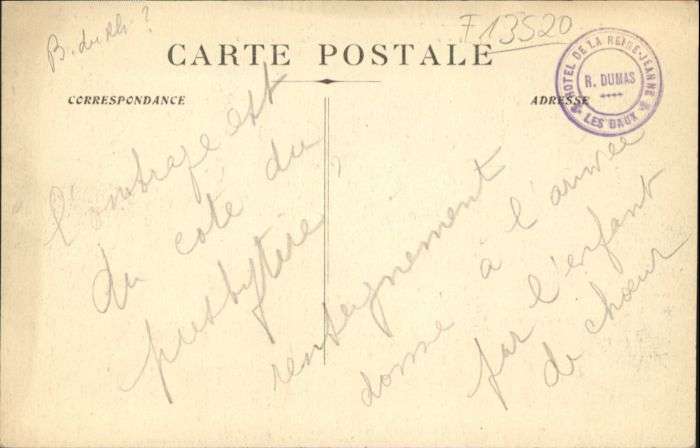 B. du Rh ?
F 13520
CARTE POSTALE
CORRESPONDANCE
ADRESSE
HOTEL DE LA REINE-JEANNE
R. DUMAS
LES BAUX
l'ombrage est
du coté du
presbytère,
renseignement
donné à l'arrivée
par l'enfant
de chœur